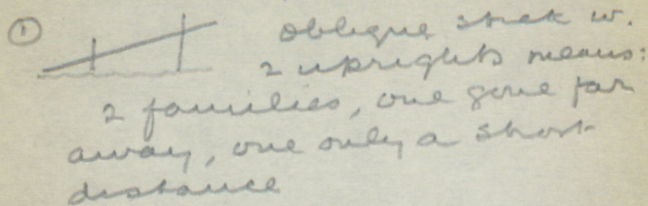 ① oblique stick w.
2 uprights means:
2 families, one gone far
away, one only a short
distance